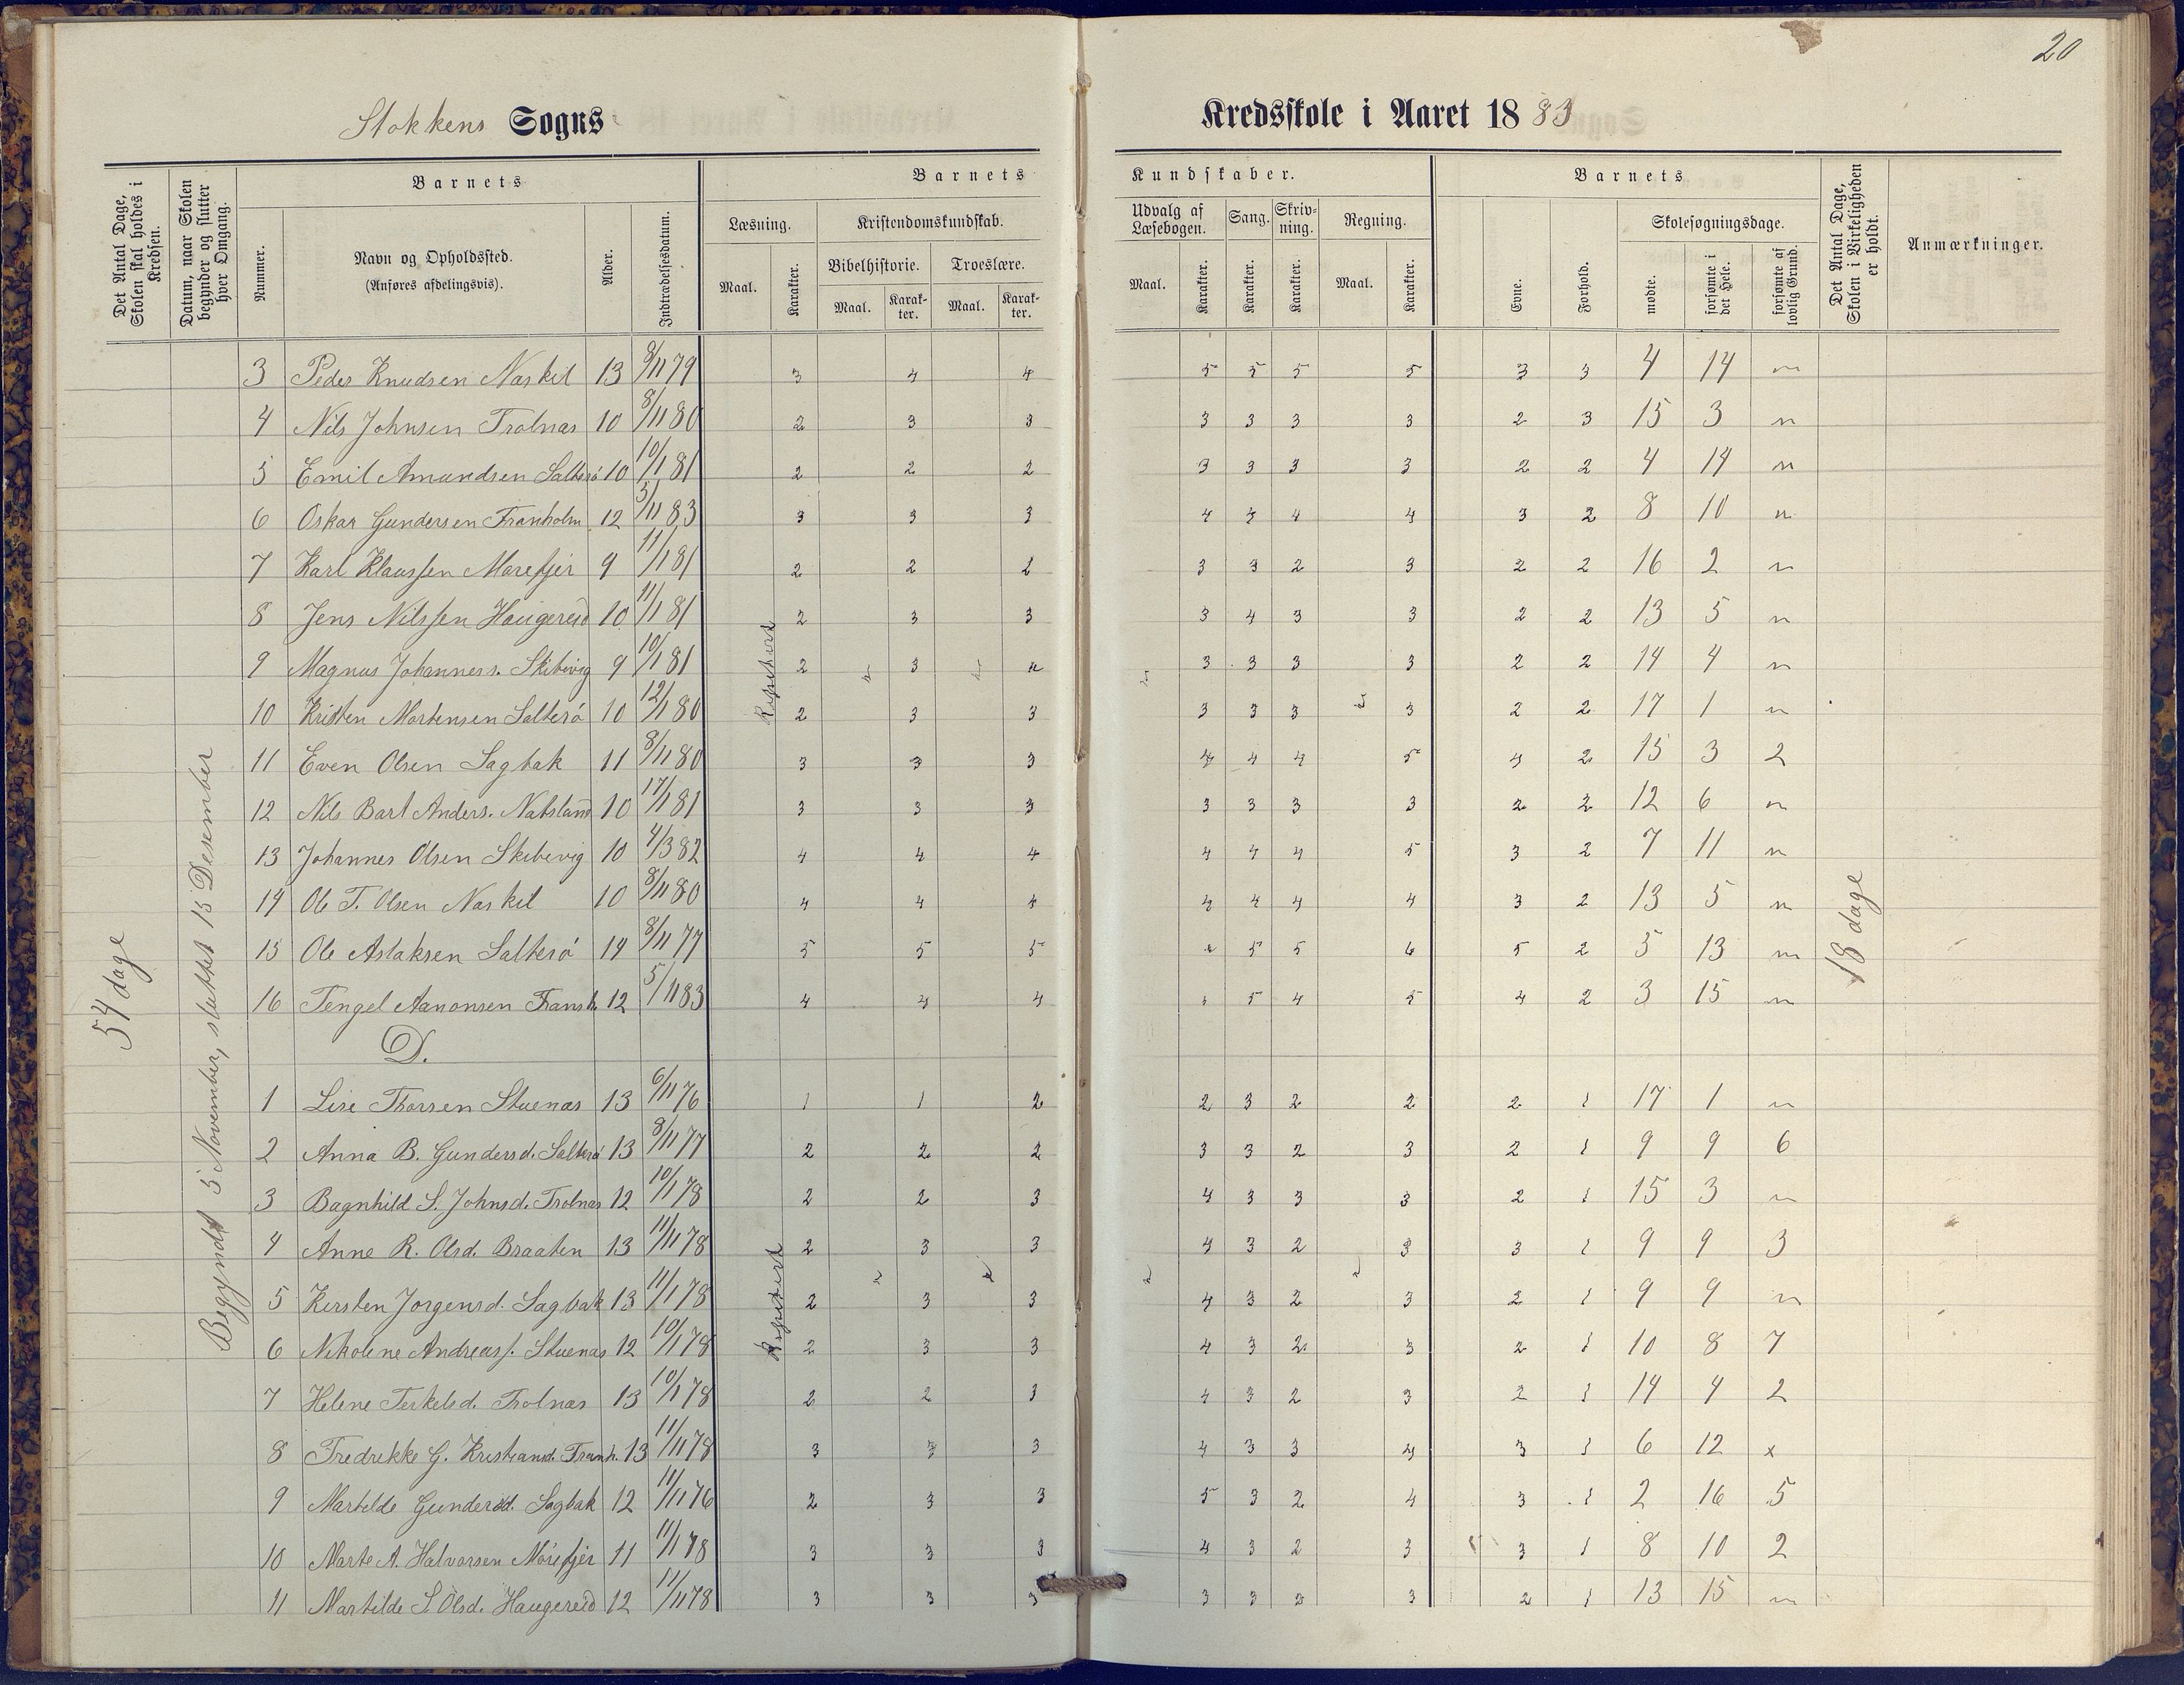 20
Stokkens Sogns Kredsskole i Aaret 1883
Det Antal Dage, Skolen skal holdes i Kredsen.
Datum, naar Skolen begynder og slutter hver Omgang.
Barnets
Nummer.
Navn og Opholdssted.
(Anføres afdelingsvis).
Alder.
Indtrædelsesdatum.
Barnets Kundskaber.
Læsning.
Maal.
Karakter.
Kristendomskundskab.
Bibelhistorie.
Maal.
Karakter.
Troeslære.
Maal.
Karakter.
Udvalg af Læsebogen.
Maal.
Karakter.
Sang.
Karakter.
Skrivning.
Karakter.
Regning.
Maal.
Karakter.
Barnets
Evne.
Forhold.
Skolesøgningsdage.
mødte.
forsømte i det Hele.
forsømte af lovlig Grund.
Det Antal Dage, Skolen i Virkeligheden er holdt.
Anmærkninger.
54 dage
Begyndt 5 November, sluttet 15 Desember
Repetert
18 dage
3 Peder Knudsen Naskil 13 8/11 79 3 4 4 5 5 5 5 3 3 4 14 "
4 Nils Johnsen Trolnæs 10 8/11 80 2 3 3 3 3 3 3 2 3 15 3 "
5 Emil Amundsen Salterø 10 10/1 81 2 2 2 3 3 3 3 2 2 4 14 "
6 Oskar Gundersen Franholm 12 5/11 83 3 3 3 4 4 4 4 3 2 8 10 "
7 Karl Klaussen Morefjer 9 11/1 81 2 2 2 3 3 2 3 2 2 16 2 "
8 Jens Nilssen Haugereid 10 11/1 81 2 3 3 3 4 3 3 2 2 13 5 "
9 Magnus Johanness. Skibevig 9 10/1 81 2 3 3 3 3 3 2 2 14 4 "
10 Kristen Mortensen Salterø 10 12/1 80 2 3 3 3 3 3 3 2 2 17 1 "
11 Even Olsen Sagbak 11 8/11 80 3 3 3 4 4 4 5 4 2 15 3 2
12 Nils Barl Anders. Natsland 10 17/1 81 3 3 3 3 3 3 3 2 2 12 6 "
13 Johannes Olsen Skibevig 10 4/3 82 4 4 4 4 4 4 5 3 2 7 11 "
14 Ole T. Olsen Naskil 10 8/11 80 4 4 4 4 4 4 4 3 2 13 5 "
15 Ole Aslaksen Salterø 14 8/11 77 5 5 5 5 5 6 5 2 5 13 "
16 Tengel Aanonsen Fransh. 12 5/11 83 4 4 4 5 4 5 4 2 3 15 "
D.
1 Lise Thorsen Stuenæs 13 6/11 76 1 1 2 2 3 2 2 2 1 17 1 "
2 Anna B. Gundersd. Salterø 13 8/11 77 2 2 2 3 3 2 3 2 1 9 9 6
3 Bagnhild S. Johnsd. Trolnæs 12 10/1 78 2 2 3 4 3 3 3 2 1 15 3 "
4 Anne R. Olsd. Braaten 13 11/11 78 2 3 3 4 3 2 3 3 1 9 9 3
Repetert
5 Kersten Jorgensd. Sagbak 13 11/1 78 2 3 3 4 3 2 3 2 1 9 9 "
6 Nikoline Andreass. Stuenæs 12 10/1 78 2 3 3 4 3 2 3 2 1 10 8 7
7 Helene Terkelsd. Trolnæs 13 10/1 78 2 2 3 4 3 2 3 2 1 14 4 2
8 Fredrekke G. Kristiansd. Franh. 13 11/11 78 3 3 3 4 3 3 4 3 1 6 12 x
9 Martilde Gundersd. Sagbak 12 11/11 76 2 3 3 5 3 2 4 3 1 2 16 5
10 Marte A. Halvorsen Mörefjer 11 11/1 78 3 3 3 4 3 2 3 3 1 8 10 2
11 Martilde S. Olsd. Haugereid 12 11/11 78 3 3 3 3 3 3 3 2 1 13 15 "